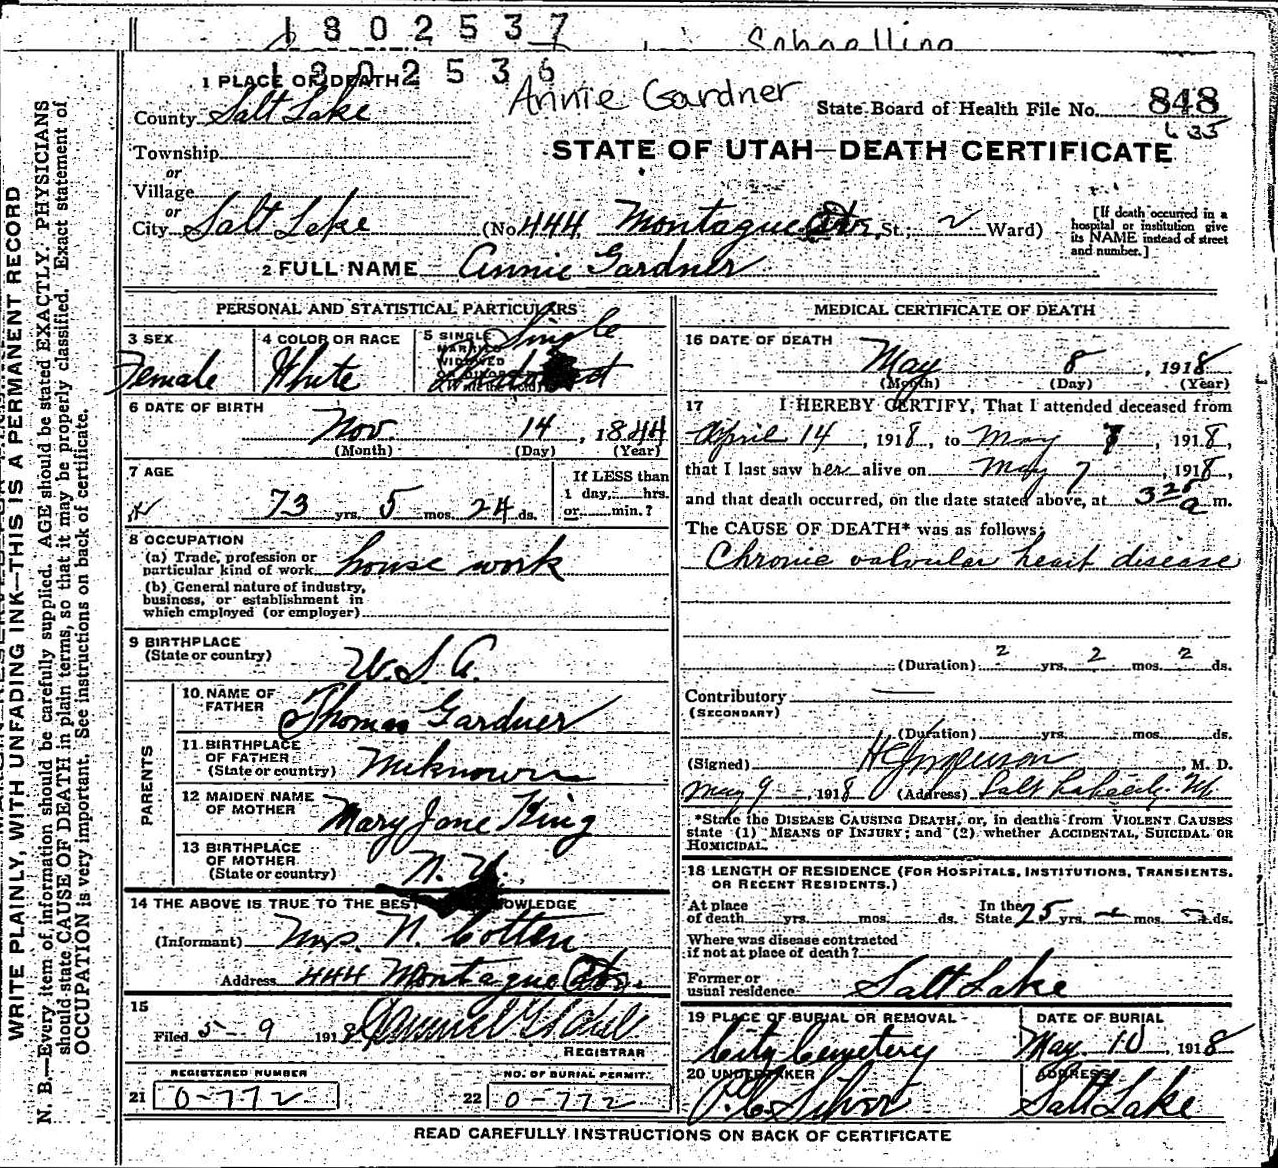 1802537
1802536
Annie Gardner
1 PLACE OF DEATH
County Salt Lake
State Board of Health File No. 848
635
Township
or
Village
or
City Salt Lake (No. 444 Montague St.; 2 Ward)
STATE OF UTAH—DEATH CERTIFICATE
[If death occurred in a hospital or institution give its NAME instead of street and number.]
2 FULL NAME Annie Gardner
PERSONAL AND STATISTICAL PARTICULARS
3 SEX
Female
4 COLOR OR RACE
White
5 SINGLE
MARRIED
WIDOWED
Single
6 DATE OF BIRTH
Nov. 14, 1844
(Month) (Day) (Year)
7 AGE
73 yrs. 5 mos. 24 ds.
If LESS than
1 day,....hrs.
or....min.?
8 OCCUPATION
(a) Trade, profession or
particular kind of work house work
(b) General nature of industry,
business, or establishment in
which employed (or employer)
9 BIRTHPLACE
(State or country)
U.S.A.
PARENTS
10 NAME OF
FATHER
Thomas Gardner
11 BIRTHPLACE
OF FATHER
(State or country)
Unknown
12 MAIDEN NAME
OF MOTHER
Mary Jane King
13 BIRTHPLACE
OF MOTHER
(State or country)
N.Y.
14 THE ABOVE IS TRUE TO THE BEST KNOWLEDGE
(Informant) Mrs. N. Cotten
Address 444 Montague
15
Filed 5-9 1918
REGISTRAR
REGISTERED NUMBER
21 0-772
NO. OF BURIAL PERMIT.
22 0-772
MEDICAL CERTIFICATE OF DEATH
16 DATE OF DEATH
May 8, 1918
(Month) (Day) (Year)
17 I HEREBY CERTIFY, That I attended deceased from
April 14, 1918, to May 7, 1918,
that I last saw her alive on May 7, 1918,
and that death occurred, on the date stated above, at 3 25 a m.
The CAUSE OF DEATH* was as follows:
Chronic valvular heart disease
(Duration) 2 yrs. 2 mos. 2 ds.
Contributory
(SECONDARY)
(Duration) yrs. mos. ds.
(Signed) , M. D.
May 9, 1918 (Address) Salt Lake City. Ut
*State the DISEASE CAUSING DEATH, or, in deaths from VIOLENT CAUSES
state (1) MEANS OF INJURY; and (2) whether ACCIDENTAL, SUICIDAL OR
HOMICIDAL.
18 LENGTH OF RESIDENCE (FOR HOSPITALS, INSTITUTIONS, TRANSIENTS,
OR RECENT RESIDENTS.)
At place
of death yrs. mos. ds.
In the
State 75 yrs. - mos. - ds.
Where was disease contracted
if not at place of death?
Former or
usual residence Salt Lake
19 PLACE OF BURIAL OR REMOVAL
City Cemetery
DATE OF BURIAL
May. 10, 1918
20 UNDERTAKER
ADDRESS
Salt Lake
READ CAREFULLY INSTRUCTIONS ON BACK OF CERTIFICATE
WRITE PLAINLY, WITH UNFADING INK—THIS IS A PERMANENT RECORD
N. B.—Every item of information should be carefully supplied. AGE should be stated EXACTLY. PHYSICIANS
should state CAUSE OF DEATH in plain terms, so that it may be properly classified. Exact statement of
OCCUPATION is very important. See instructions on back of certificate.